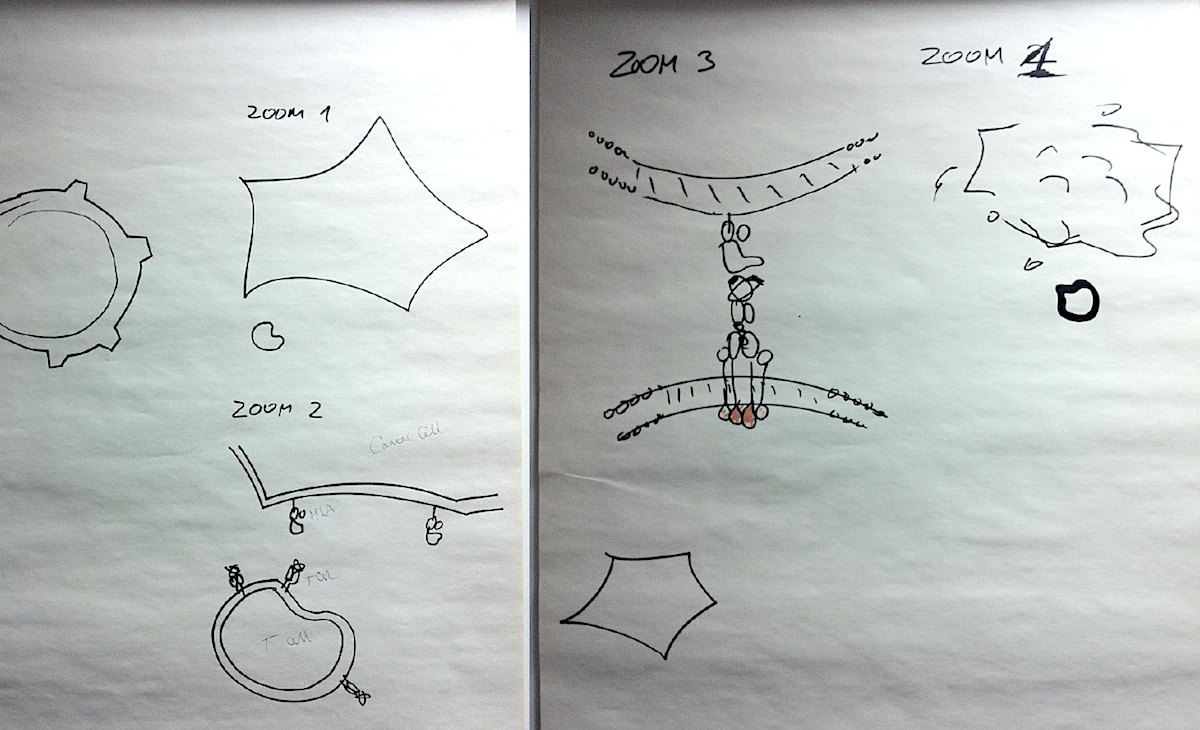 ZOOM 1
ZOOM 2
Cancer Cell
HLA
TCR
T cell
ZOOM 3
ZOOM 4